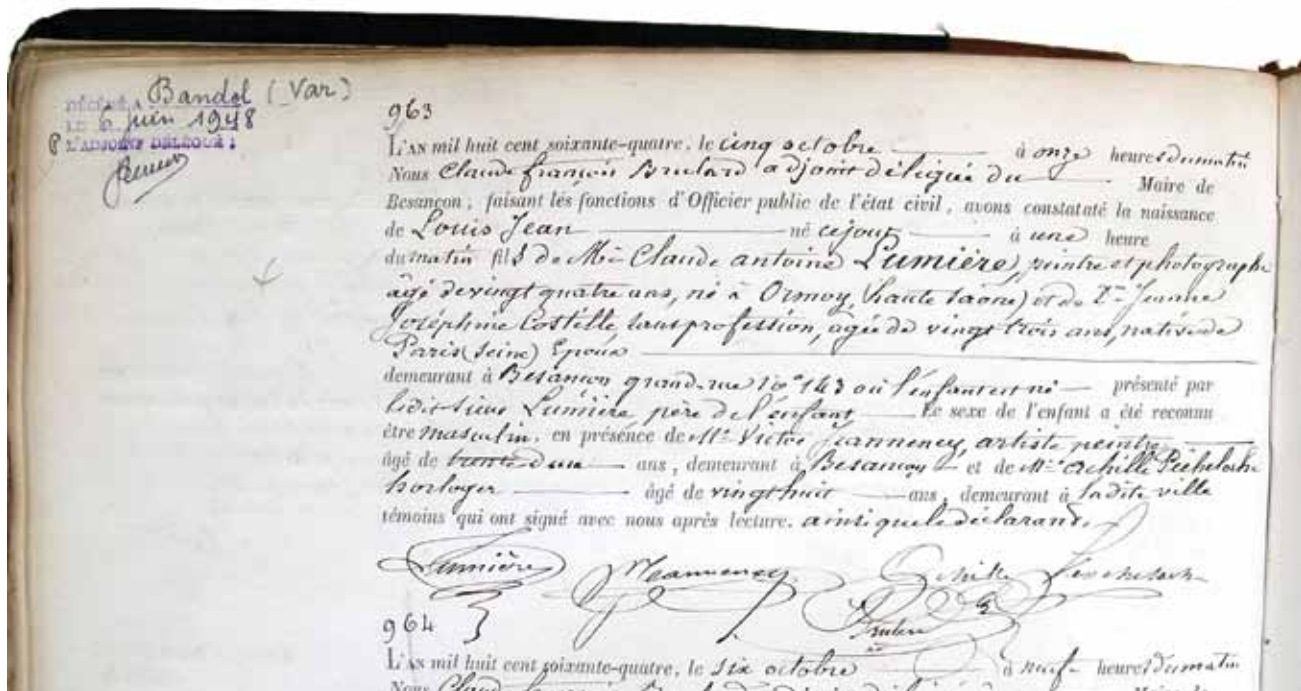 DÉCÉDÉ A Bandol (Var)
LE 6 juin 1948
P L'ADJOINT DÉLÉGUÉ :
963
L'AN mil huit cent soixante-quatre, le cinq octobre à onze heures du matin
Nous Claude françois Brulard adjoint délégué du Maire de
Besançon, faisant les fonctions d'Officier public de l'état civil, avons constataté la naissance
de Louis Jean né ce jour à une heure
du matin fils de Mr Claude antoine Lumière, peintre et photographe
âgé de vingt quatre ans, né à Ormoy, (haute Saône) et de De Jeanne
Joséphine Costille sans profession, âgée de vingt trois ans, native de
Paris (Seine) Epoux
demeurant à Besançon grand-rue No 143 où l'enfant est né présenté par
ledit sieur Lumière père de l'enfant Le sexe de l'enfant a été reconnu
être masculin, en présence de Mr Victor Jeanneney, artiste peintre
âgé de trente deux ans, demeurant à Besançon et de Mr Achille
horloger âgé de vingt huit ans, demeurant à ladite ville
témoins qui ont signé avec nous après lecture. ainsi que le déclarant.
Lumière Jeanneney Achille
Brulard
964
L'AN mil huit cent soixante-quatre, le six octobre à neuf heures du matin
Nous Claude françois Brulard adjoint délégué du Maire de